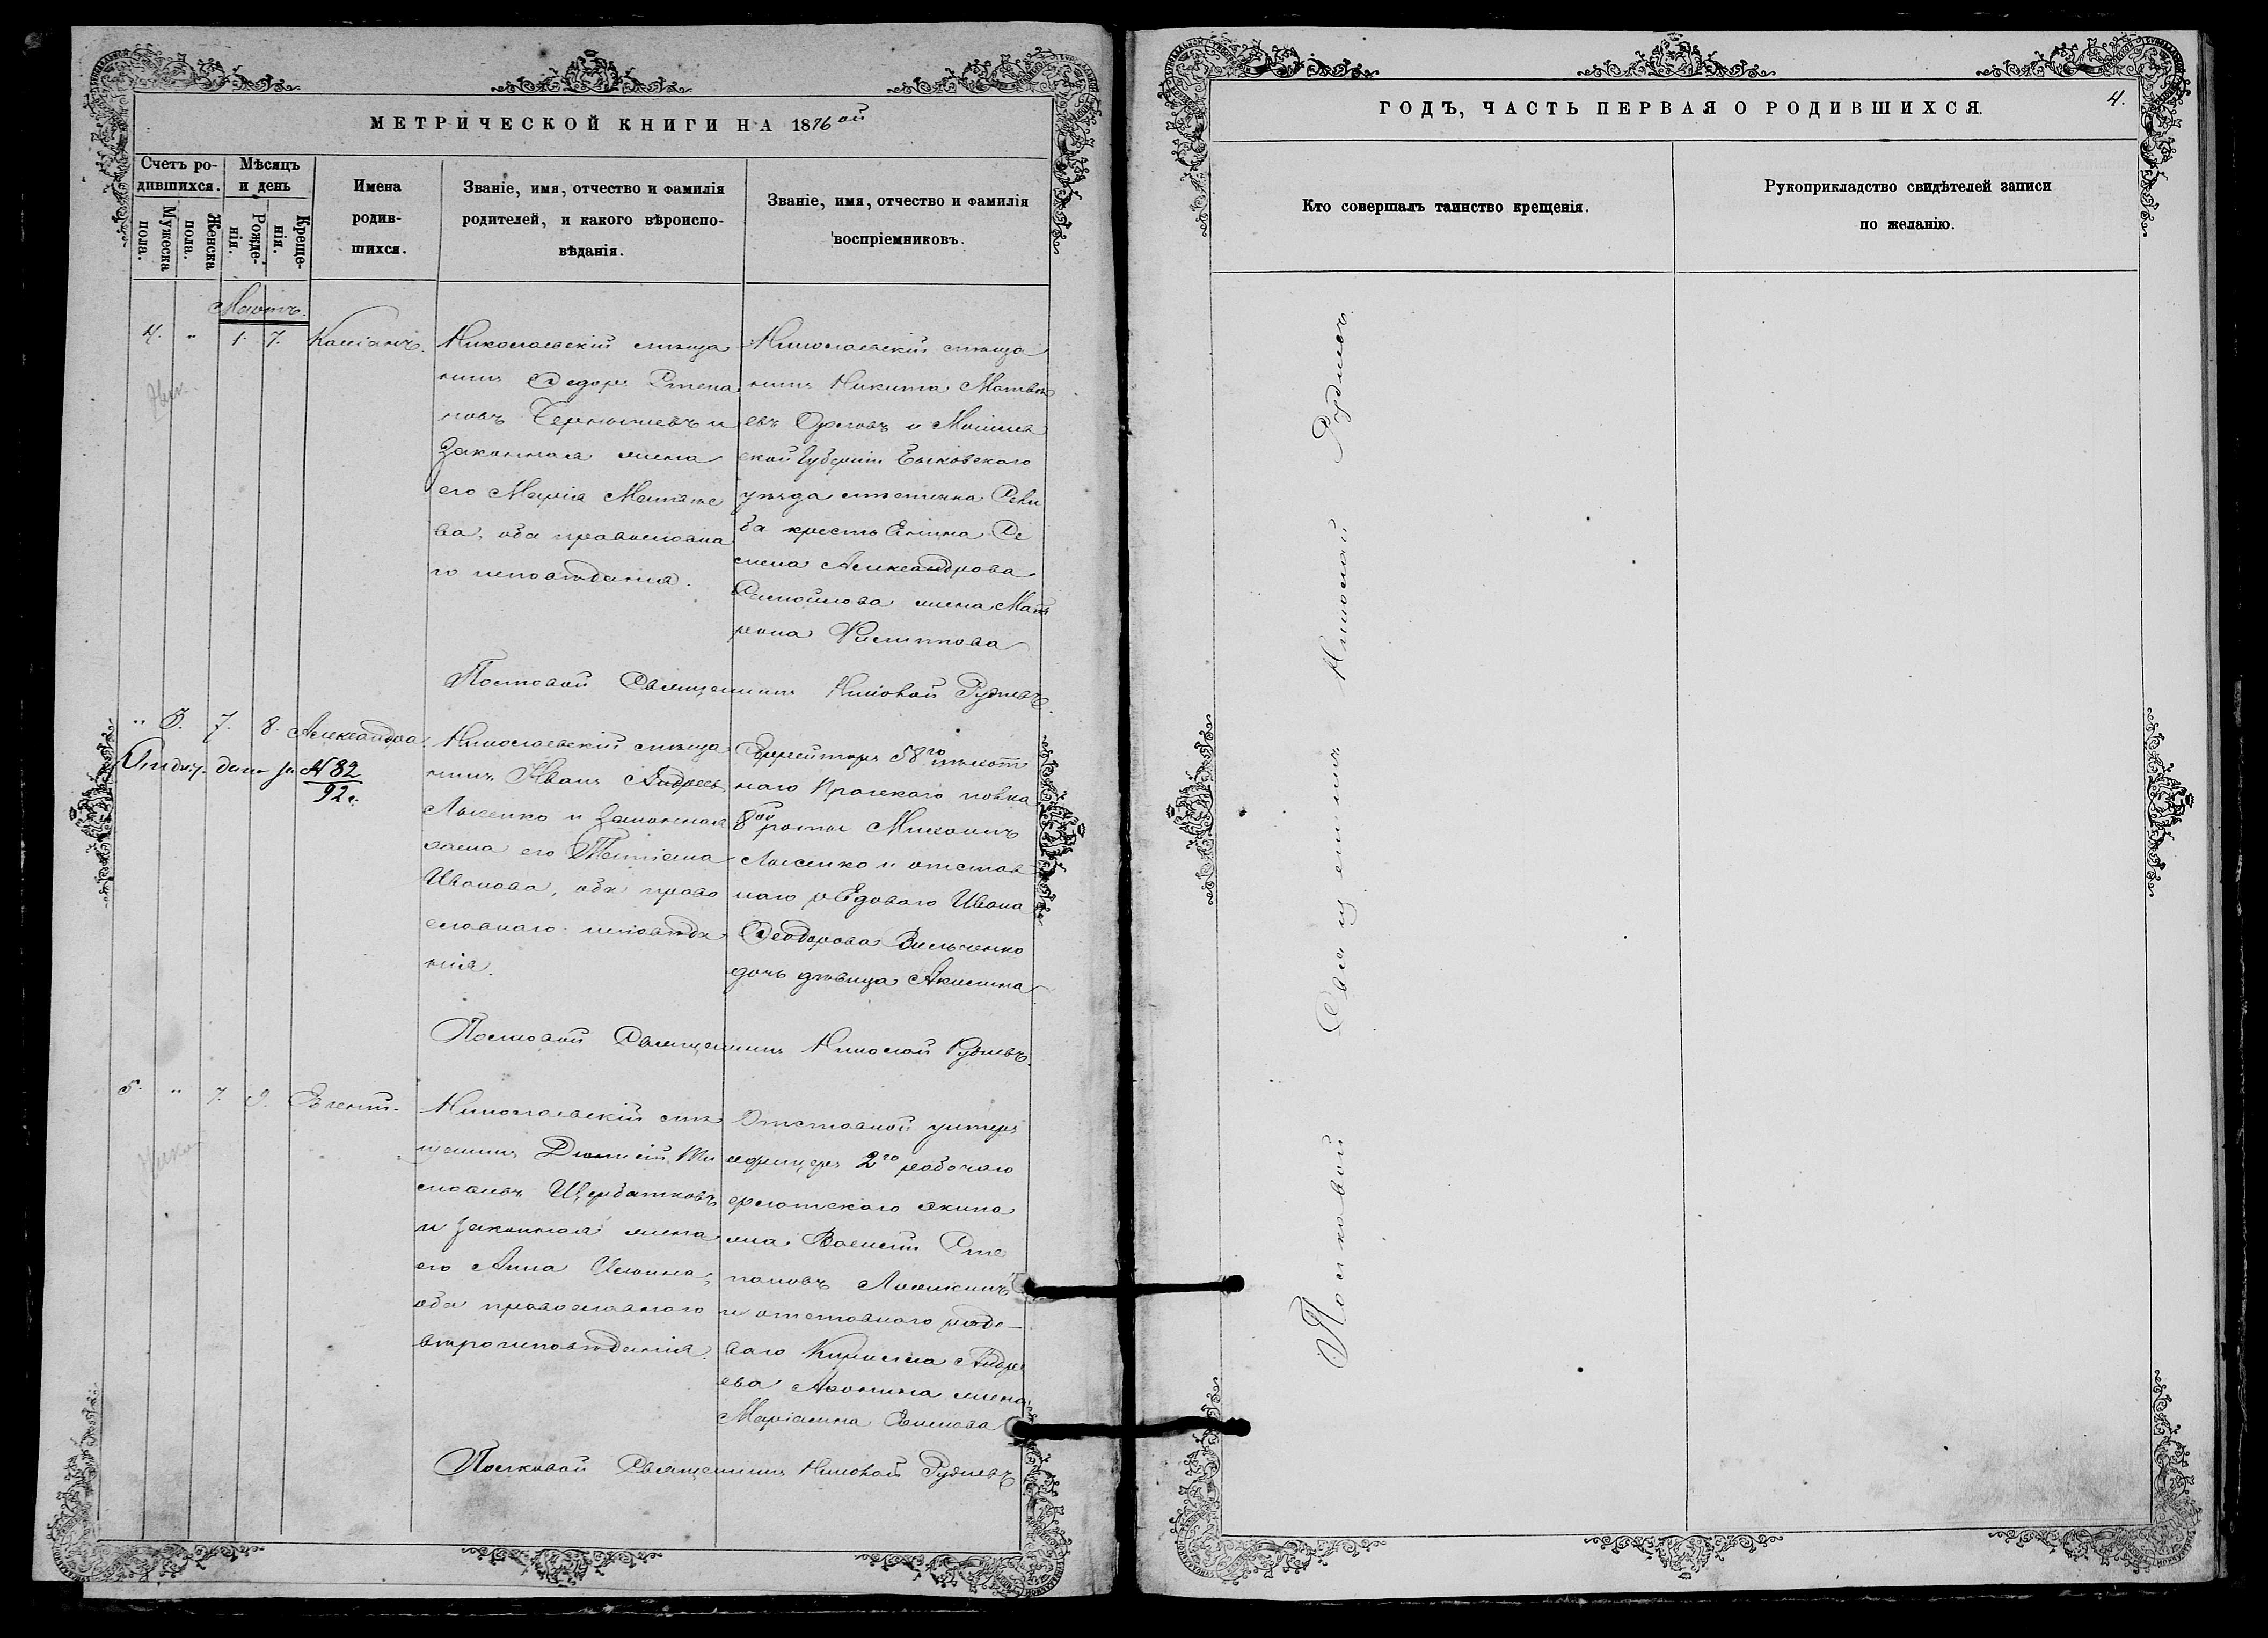 МЕТРИЧЕСКОЙ КНИГИ НА 1876ой
Счетъ ро-
дившихся.
Мужеска пола.
Женска пола.
Мѣсяцъ
и день
Рожде-
нія.
Креще-
нія.
Имена
родив-
шихся.
Званіе, имя, отчество и фамилія
родителей, и какого вѣроиспо-
вѣданія.
Званіе, имя, отчество и фамилія
воспріемниковъ.
Мартъ.
4. " 1. 7. Касіанъ.
Николаевскій мѣща
нинъ Ѳедоръ Степа
новъ Чернышевъ и
законная жена
его Марія Матвѣе
ва, оба православна
го исповѣданія.
Николаевскій мѣща
нинъ Никита Матвѣ
евъ Орловъ и Могилев
ской Губерніи Быховскаго
уѣзда
крестьянина Се
мена Александрова
Самойлова жена Мат
рона Филиппова
Полковой Священникъ Николай Рудневъ.
" 3. 7. 8. Александра.
дано за №82
92г.
Николаевскій мѣща
нинъ Иванъ Андреевъ
Лысенко и законная
жена его Татіана
Иванова, оба право
славнаго исповѣда
нія.
Ефрейторъ 58го пѣхот
наго Прагскаго полка
8ой роты Михаилъ
Лысенко и отстав
наго рядоваго Ивана
Ѳеодорова Вильченко
дочь дѣвица Акилина
Полковой Священникъ Николай Рудневъ.
5. " 7. 9. Евгеній.
Николаевскій мѣ
щанинъ Діонисій Ти
моѳеевъ Щербатковъ
и законная жена
его Анна
оба православнаго
вѣроисповѣданія.
Отставной унтеръ
офицеръ 2го рабочаго
флотскаго экипа
жа Василій Сте
пановъ Лошкинъ
и отставнаго рядо-
ваго Кирилла Андре
ева Аѳонина жена
Маріамна
Полковой Священникъ Николай Рудневъ
ГОДЪ, ЧАСТЬ ПЕРВАЯ О РОДИВШИХСЯ.
4.
Кто совершалъ таинство крещенія.
Рукоприкладство свидѣтелей записи
по желанію.
Полковой Священникъ Николай Рудневъ.